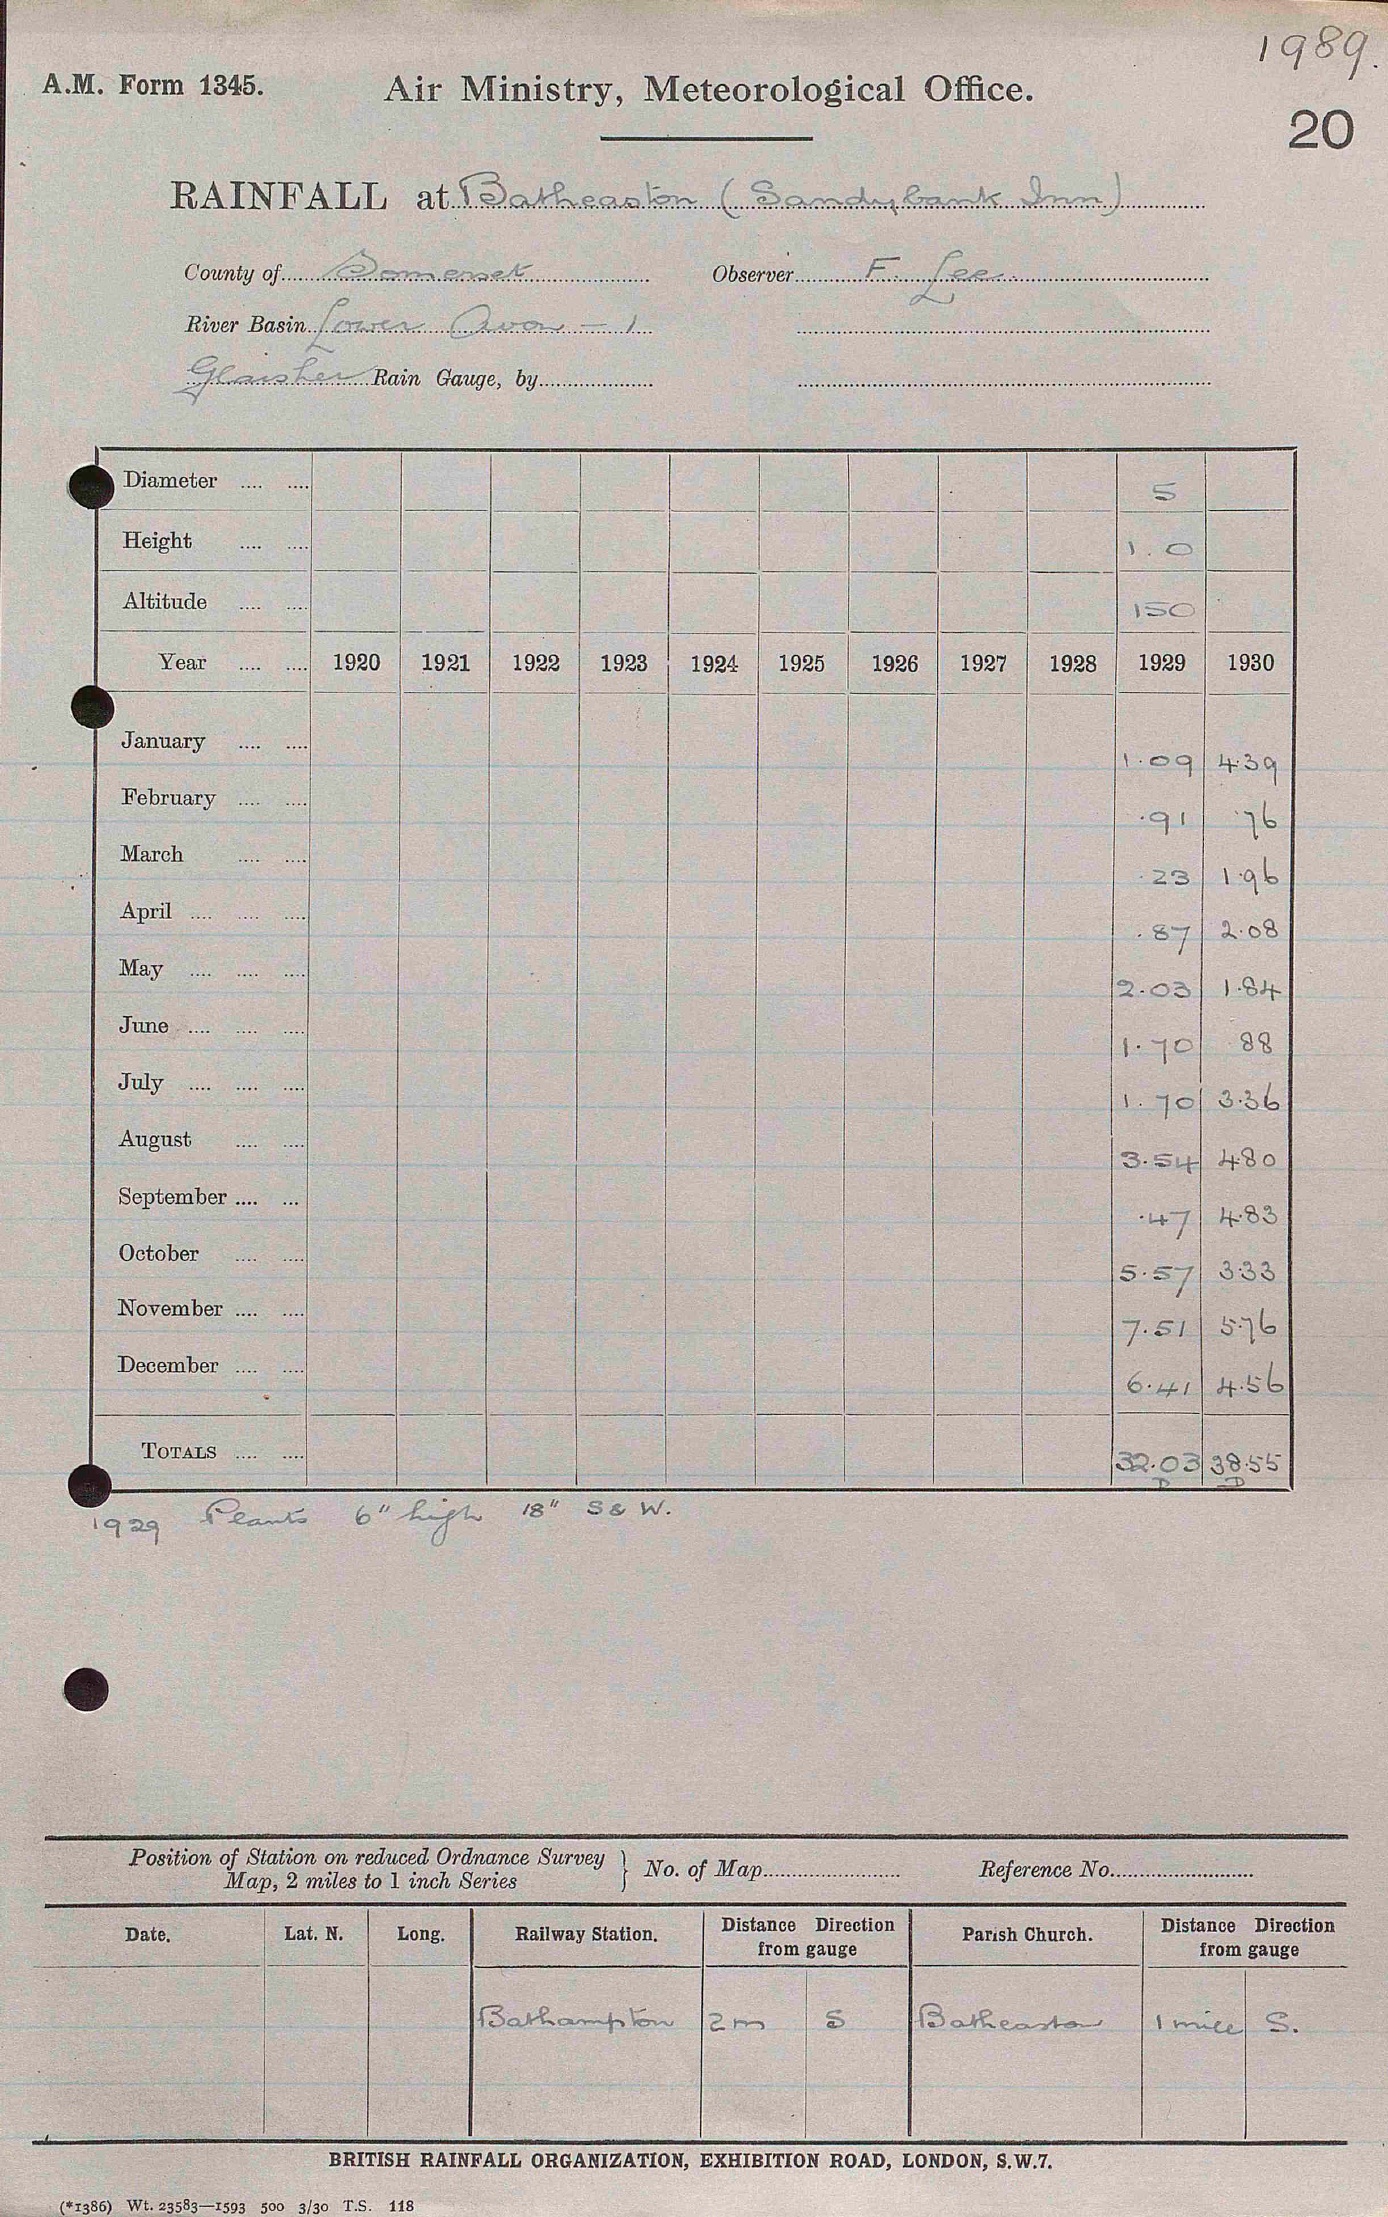 1989.
A.M. Form 1345. Air Ministry, Meteorological Office.
20
RAINFALL at Batheaston (Sandybank Inn)
County of Somerset Observer F. Lee
River Basin Lower Avon - 1
Glaisher Rain Gauge, by
Diameter .... .... 5
Height .... .... 1.0
Altitude .... .... 150
Year .... .... 1920 1921 1922 1923 1924 1925 1926 1927 1928 1929 1930
January .... .... 1.09 4.39
February .... .... .91 .76
March .... .... .23 1.96
April .... .... .... .87 2.08
May .... .... .... 2.03 1.84
June .... .... .... 1.70 .88
July .... .... .... 1.70 3.36
August .... .... 3.54 4.80
September .... ... .47 4.83
October .... .... 5.57 3.33
November .... .... 7.51 5.76
December .... .... 6.41 4.56
TOTALS .... .... 32.03 38.55
D D
1929 Plants 6" high 18" S & W.
Position of Station on reduced Ordnance Survey
Map, 2 miles to 1 inch Series } No. of Map Reference No.
Date. Lat. N. Long. Railway Station. Distance Direction from gauge Parish Church. Distance Direction from gauge
Bathampton 2m S Batheaston 1 mile S.
BRITISH RAINFALL ORGANIZATION, EXHIBITION ROAD, LONDON, S.W.7.
(*1386) Wt. 23583—1593 500 3/30 T.S. 118